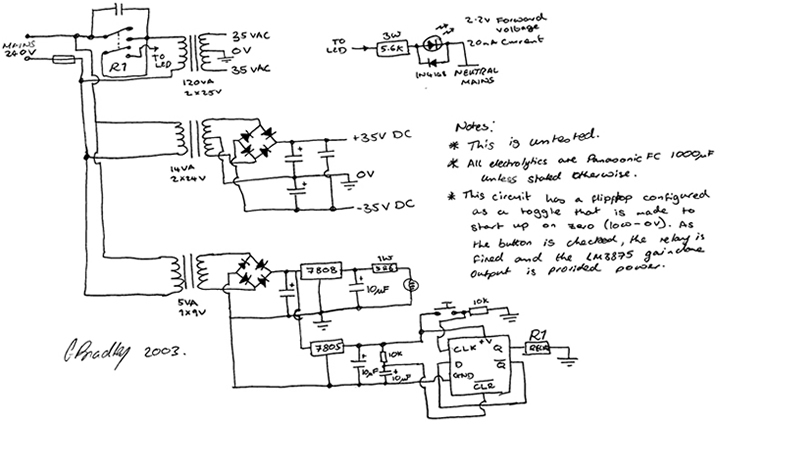 MAINS
240V
R1
TO
LED
35 VAC
0V
35 VAC
120VA
2x25V
TO
LED
3W
5.6K
1N4148
NEUTRAL
MAINS
2.2V Forward
Voltage
20mA Current
14VA
2x24V
+35V DC
0V
-35V DC
Notes:
* This is untested.
* All electrolytics are Panasonic FC 1000µF
unless stated otherwise.
* This circuit has a flipflop configured
as a toggle that is made to
start up on zero (low-0V). As
the button is checked, the relay is
fired and the LM3875 gainclone
output is provided power.
5VA
1x9V
7808
1W
10µF
7805
10µF
10K
10µF
10K
CLK
+V
Q
D
Q
GND
CLR
R1
C Bradley 2003.